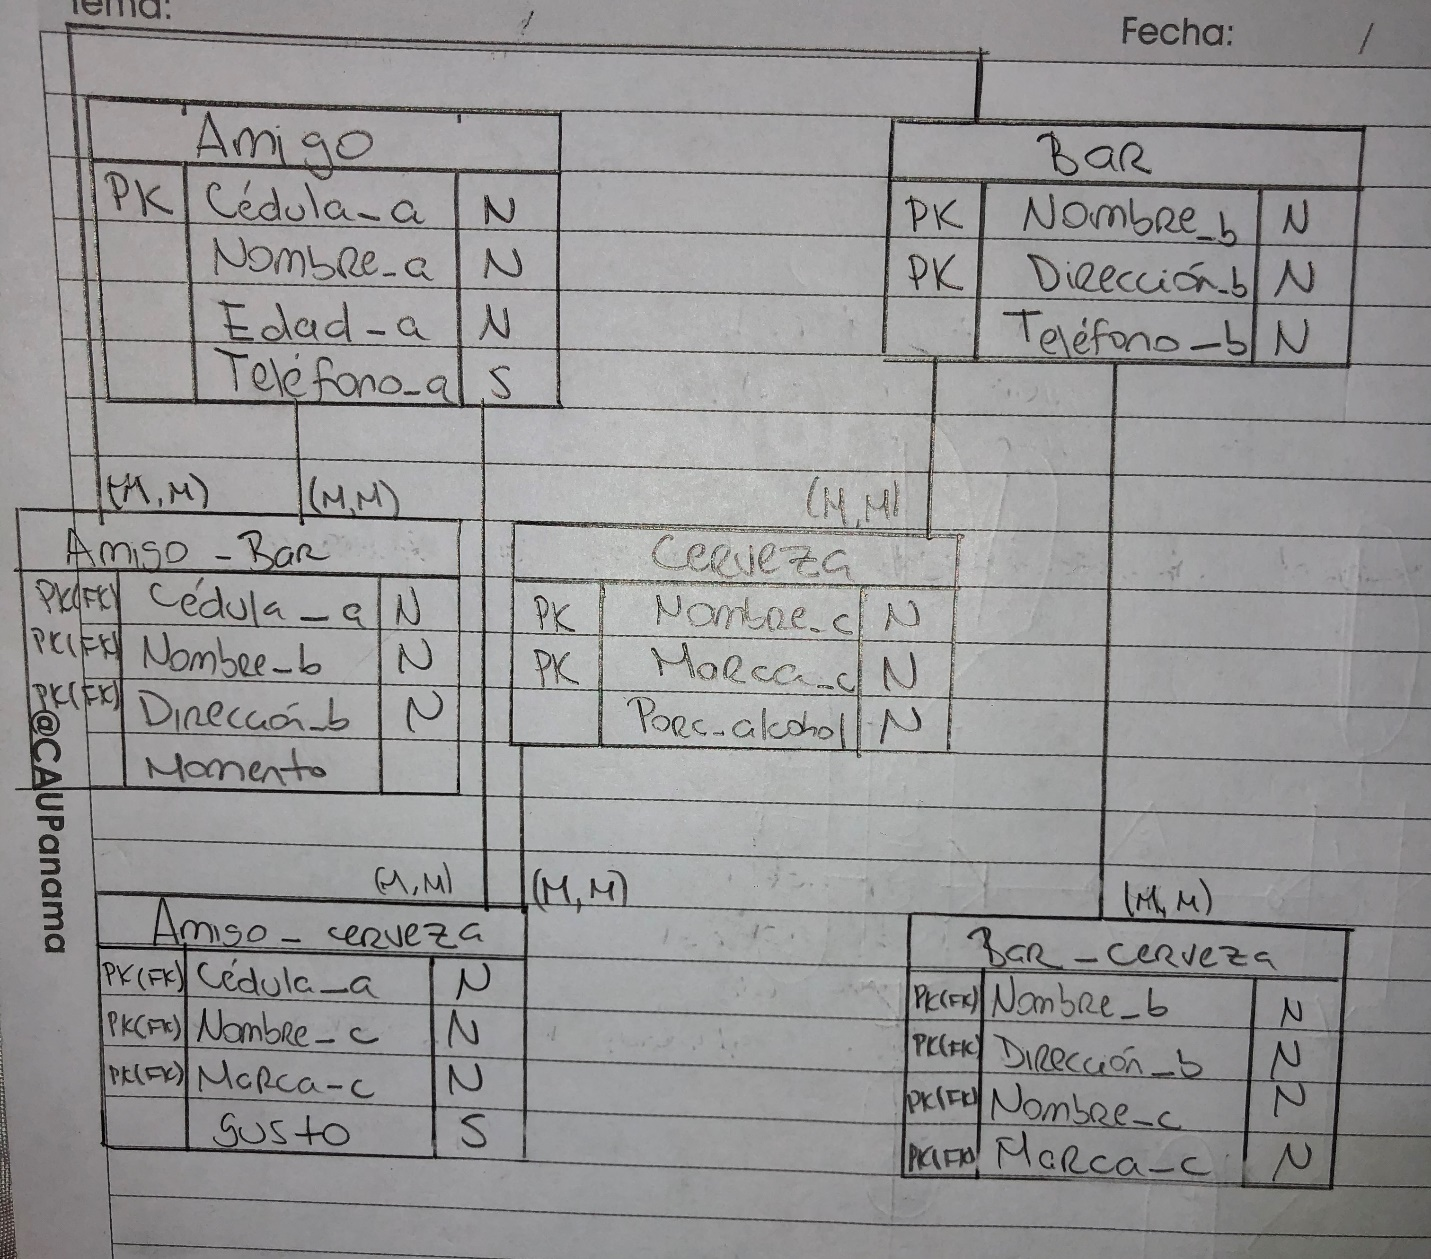 Tema: /
Fecha: /
Amigo
PK Cédula_a N
Nombre_a N
Edad_a N
Teléfono_a S
Bar
PK Nombre_b N
PK Dirección_b N
Teléfono_b N
(M,M)
(M,M)
(M,M)
Amigo_Bar
PK(FK) Cédula_a N
PK(FK) Nombre_b N
PK(FK) Dirección_b N
Momento
Cerveza
PK Nombre_c N
PK Marca_c N
Porc_alcohol N
@CAUPanama
(M,M)
(M,M)
(M,M)
Amigo_cerveza
PK(FK) Cédula_a N
PK(FK) Nombre_c N
PK(FK) Marca_c N
Gusto S
Bar_cerveza
PK(FK) Nombre_b N
PK(FK) Dirección_b N
PK(FK) Nombre_c N
PK(FK) Marca_c N